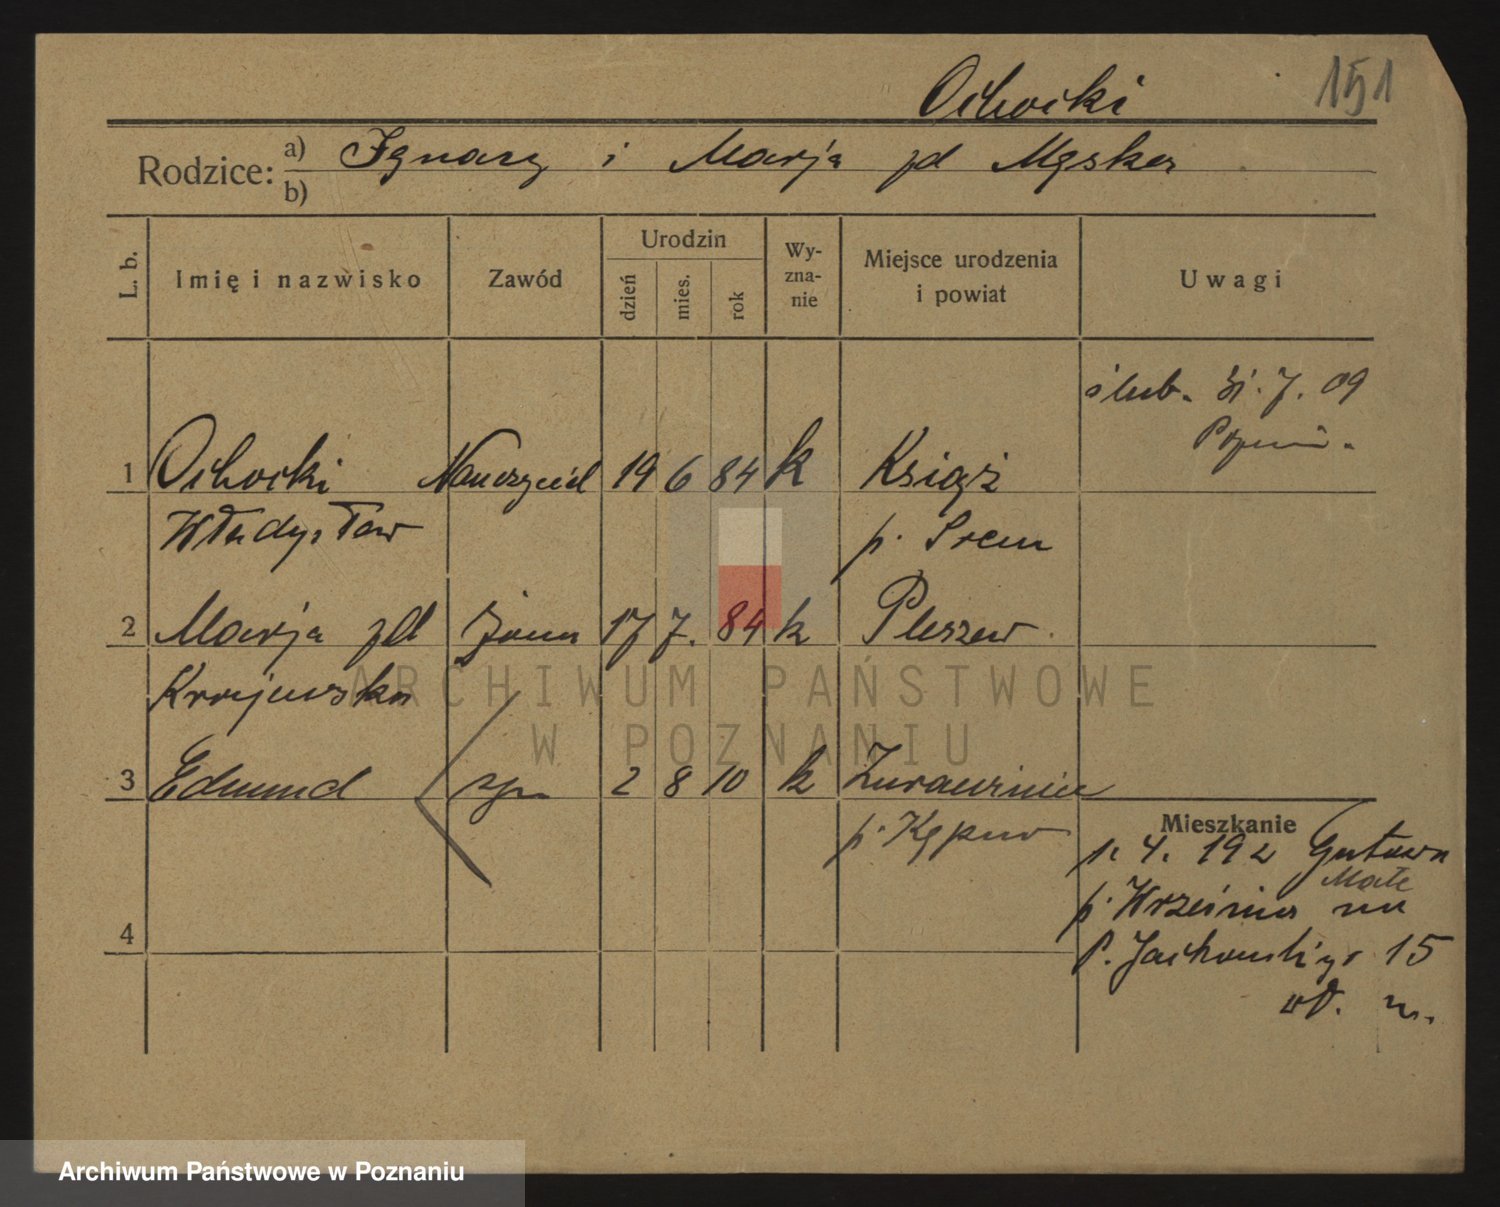 Ochocki 151
Rodzice: a) Ignacy i Marja zd Męska
b)
L. b. Imię i nazwisko Zawód Urodzin dzień mies. rok Wy-zna-nie Miejsce urodzenia i powiat Uwagi
ślub. 31. 7. 09
1 Ochocki Nauczyciel 19 6 84 k Książ
Władysław p. Śrem
2 Marja zd żona 17 7. 84 k Pleszew
Krajewska
3 Edmund syn 2 8 10 k Żurawiniec
p. Kępno
Mieszkanie
1. 4. 192 Gutowo
Małe
p. Września na
P. Jackowskiego 15
4
ARCHIWUM PAŃSTWOWE
W POZNANIU
Archiwum Państwowe w Poznaniu